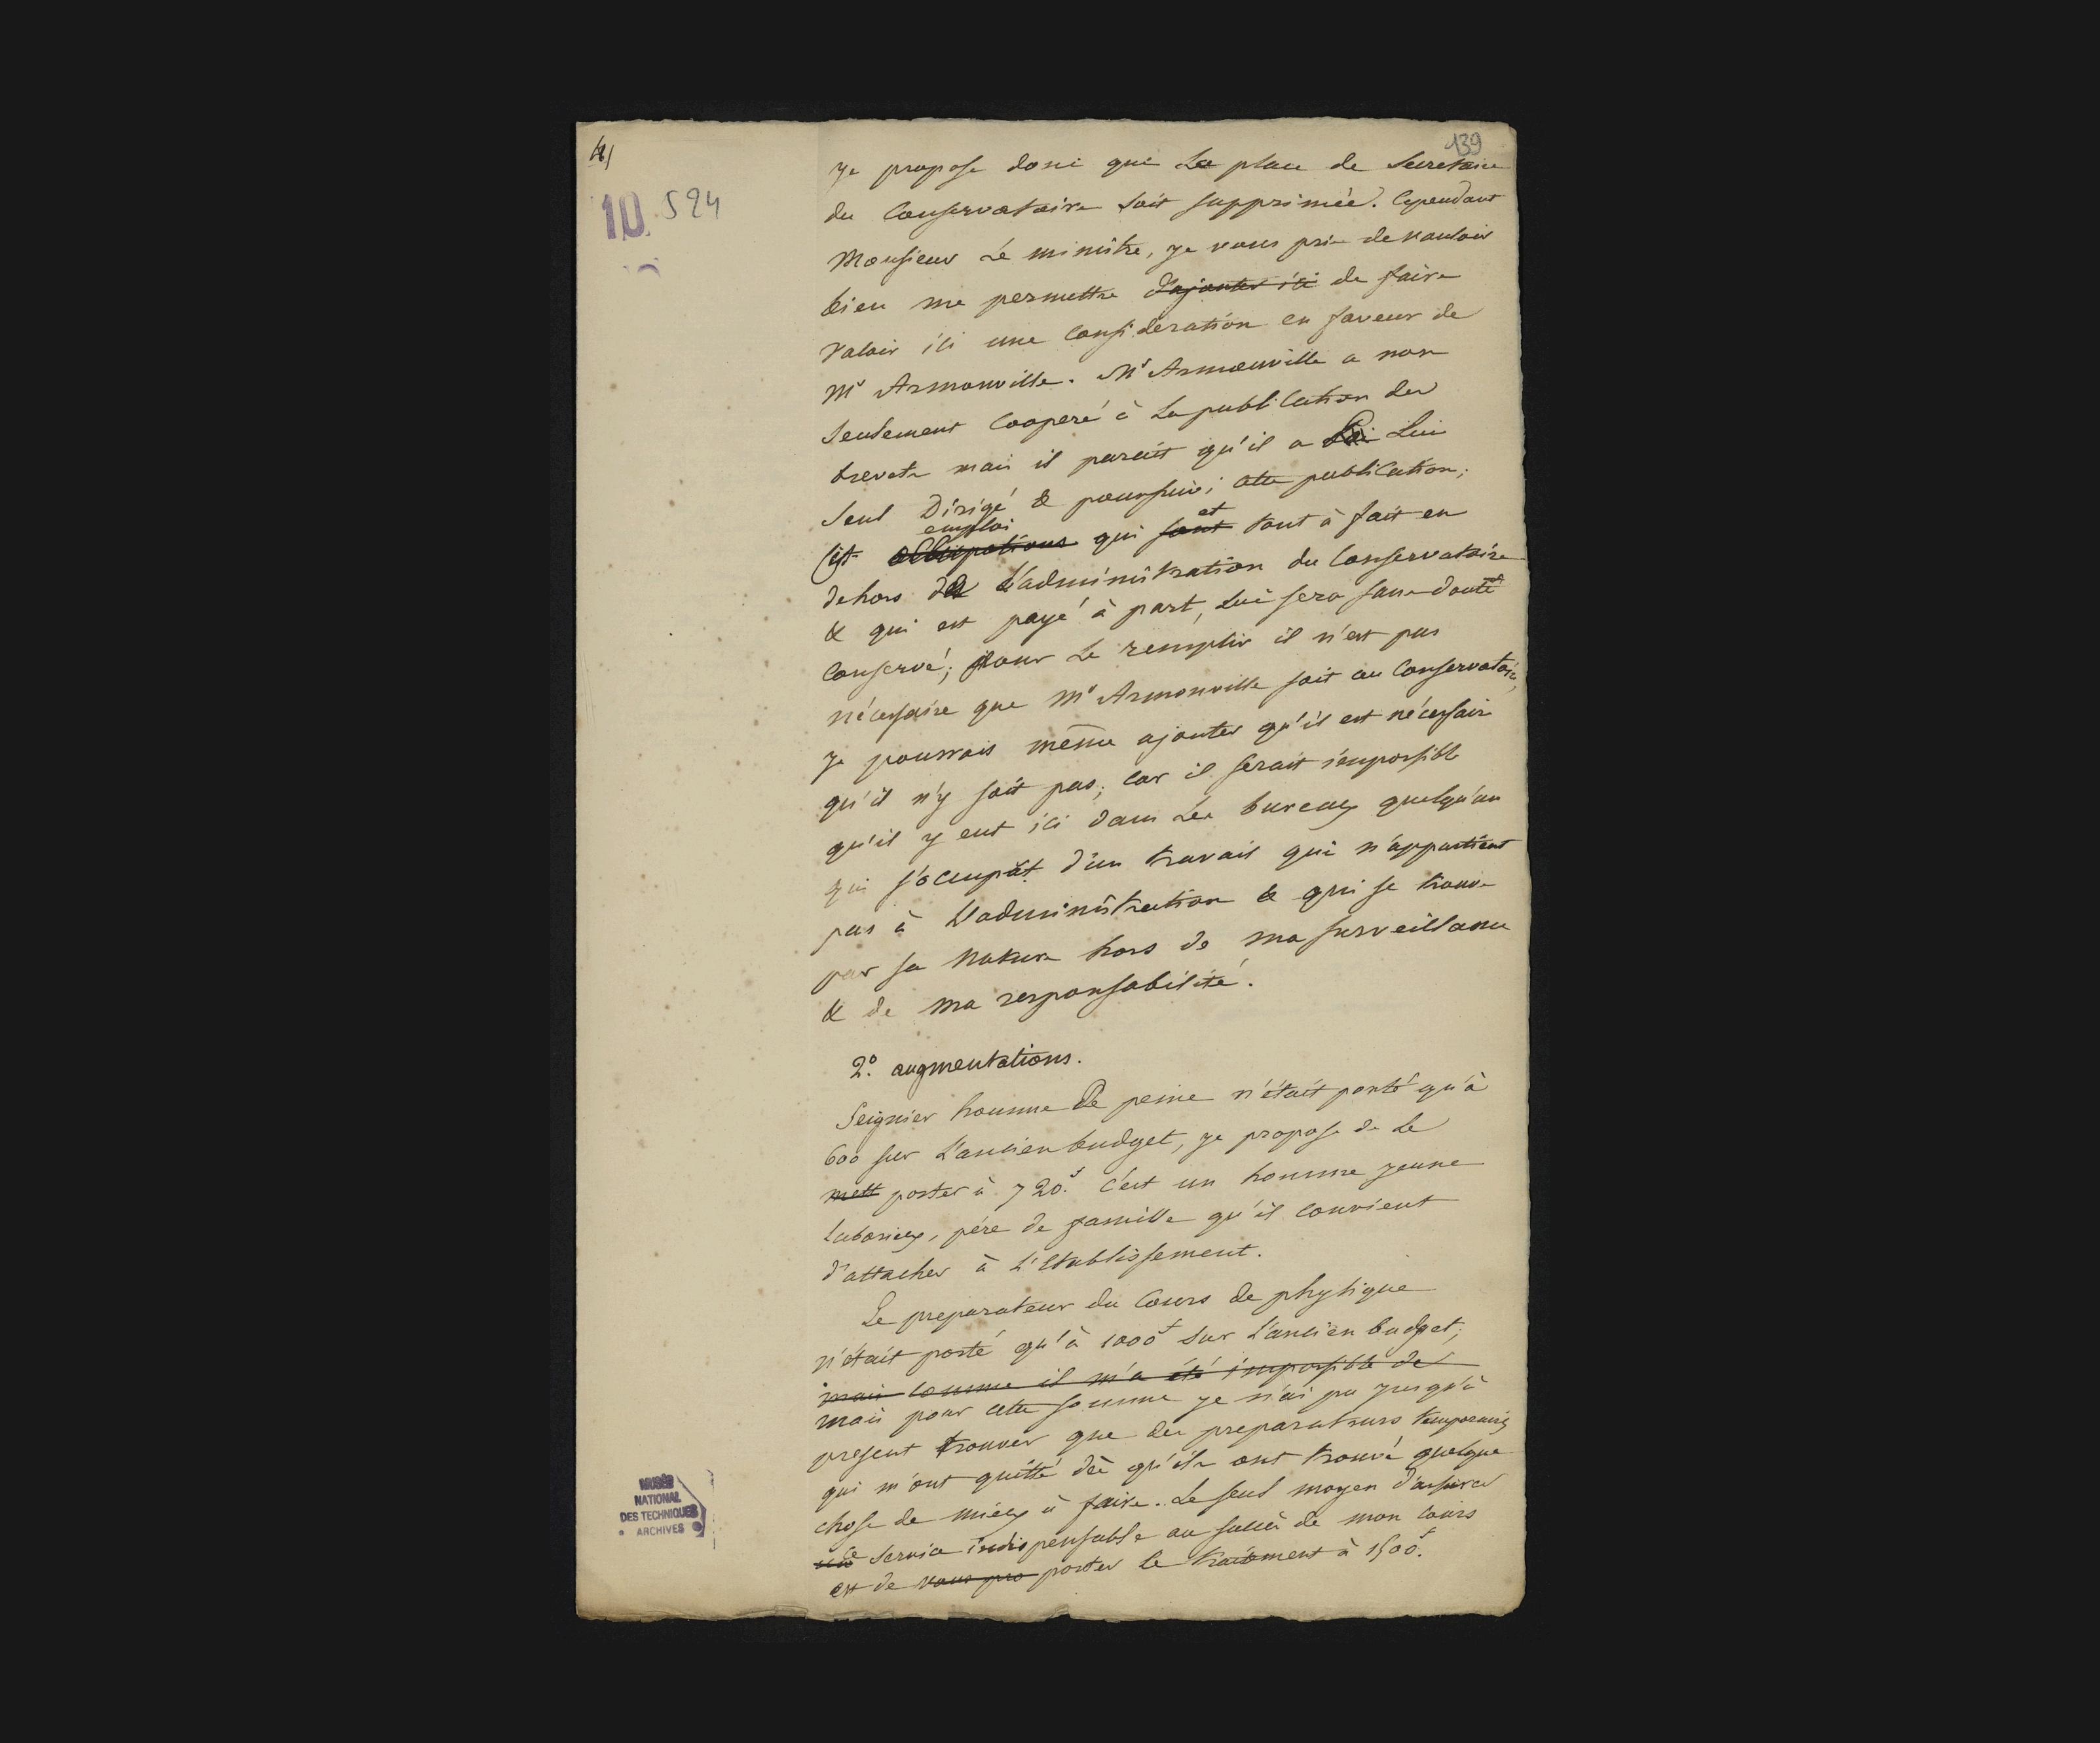 139
10 524
je propose donc que la place de Secretaire
du Conservatoire soit supprimée. Cependant
Monsieur Le ministre, je vous prie de vouloir
bien me permettre d'ajouter ici de faire
valoir ici une consideration en faveur de
Mr Armonville. Mr Armonville a non
seulement Cooperé à la publication des
brevets mais il parait qu'il a lui
seul Dirigé & poursuivi cette publication;
emploi et
Cet occupations qui sont tout à fait en
dehors de L'administration du Conservatoire
& qui est payé à part, lui sera sans doute
Conservé; pour le remplir il n'est pas
nécessaire que Mr Armonville soit au Conservatoire,
je pourrais même ajouter qu'il est nécessaire
qu'il n'y soit pas; car il serait impossible
qu'il y eut ici dans les bureaux quelqu'un
qui s'occupât d'un travail qui n'appartient
pas à L'administration & qui se trouve
par sa nature hors de ma surveillance
& de ma responsabilité.
2.° augmentations.
Seignier homme de peine n'était porté qu'à
600 sur L'ancien budget, je propose de le
mett porter à 720.f C'est un homme jeune
laborieux, père de famille qu'il convient
d'attacher à L'Etablissement.
Le preparateur du Cours de physique
n'était porté qu'à 1000f sur L'ancien budget;
mais comme il m'a été impossible de
mais pour cette somme je n'ai pu jusqu'à
present trouver que des preparateurs temporaires
qui m'ont quitté dès qu'ils ont trouvé quelque
chose de mieux à faire. Le seul moyen d'assurer
ce
service indispensable au succès de mon cours
est de vous pro porter le traitement à 1500f.
MUSÉE
NATIONAL
DES TECHNIQUES
ARCHIVES